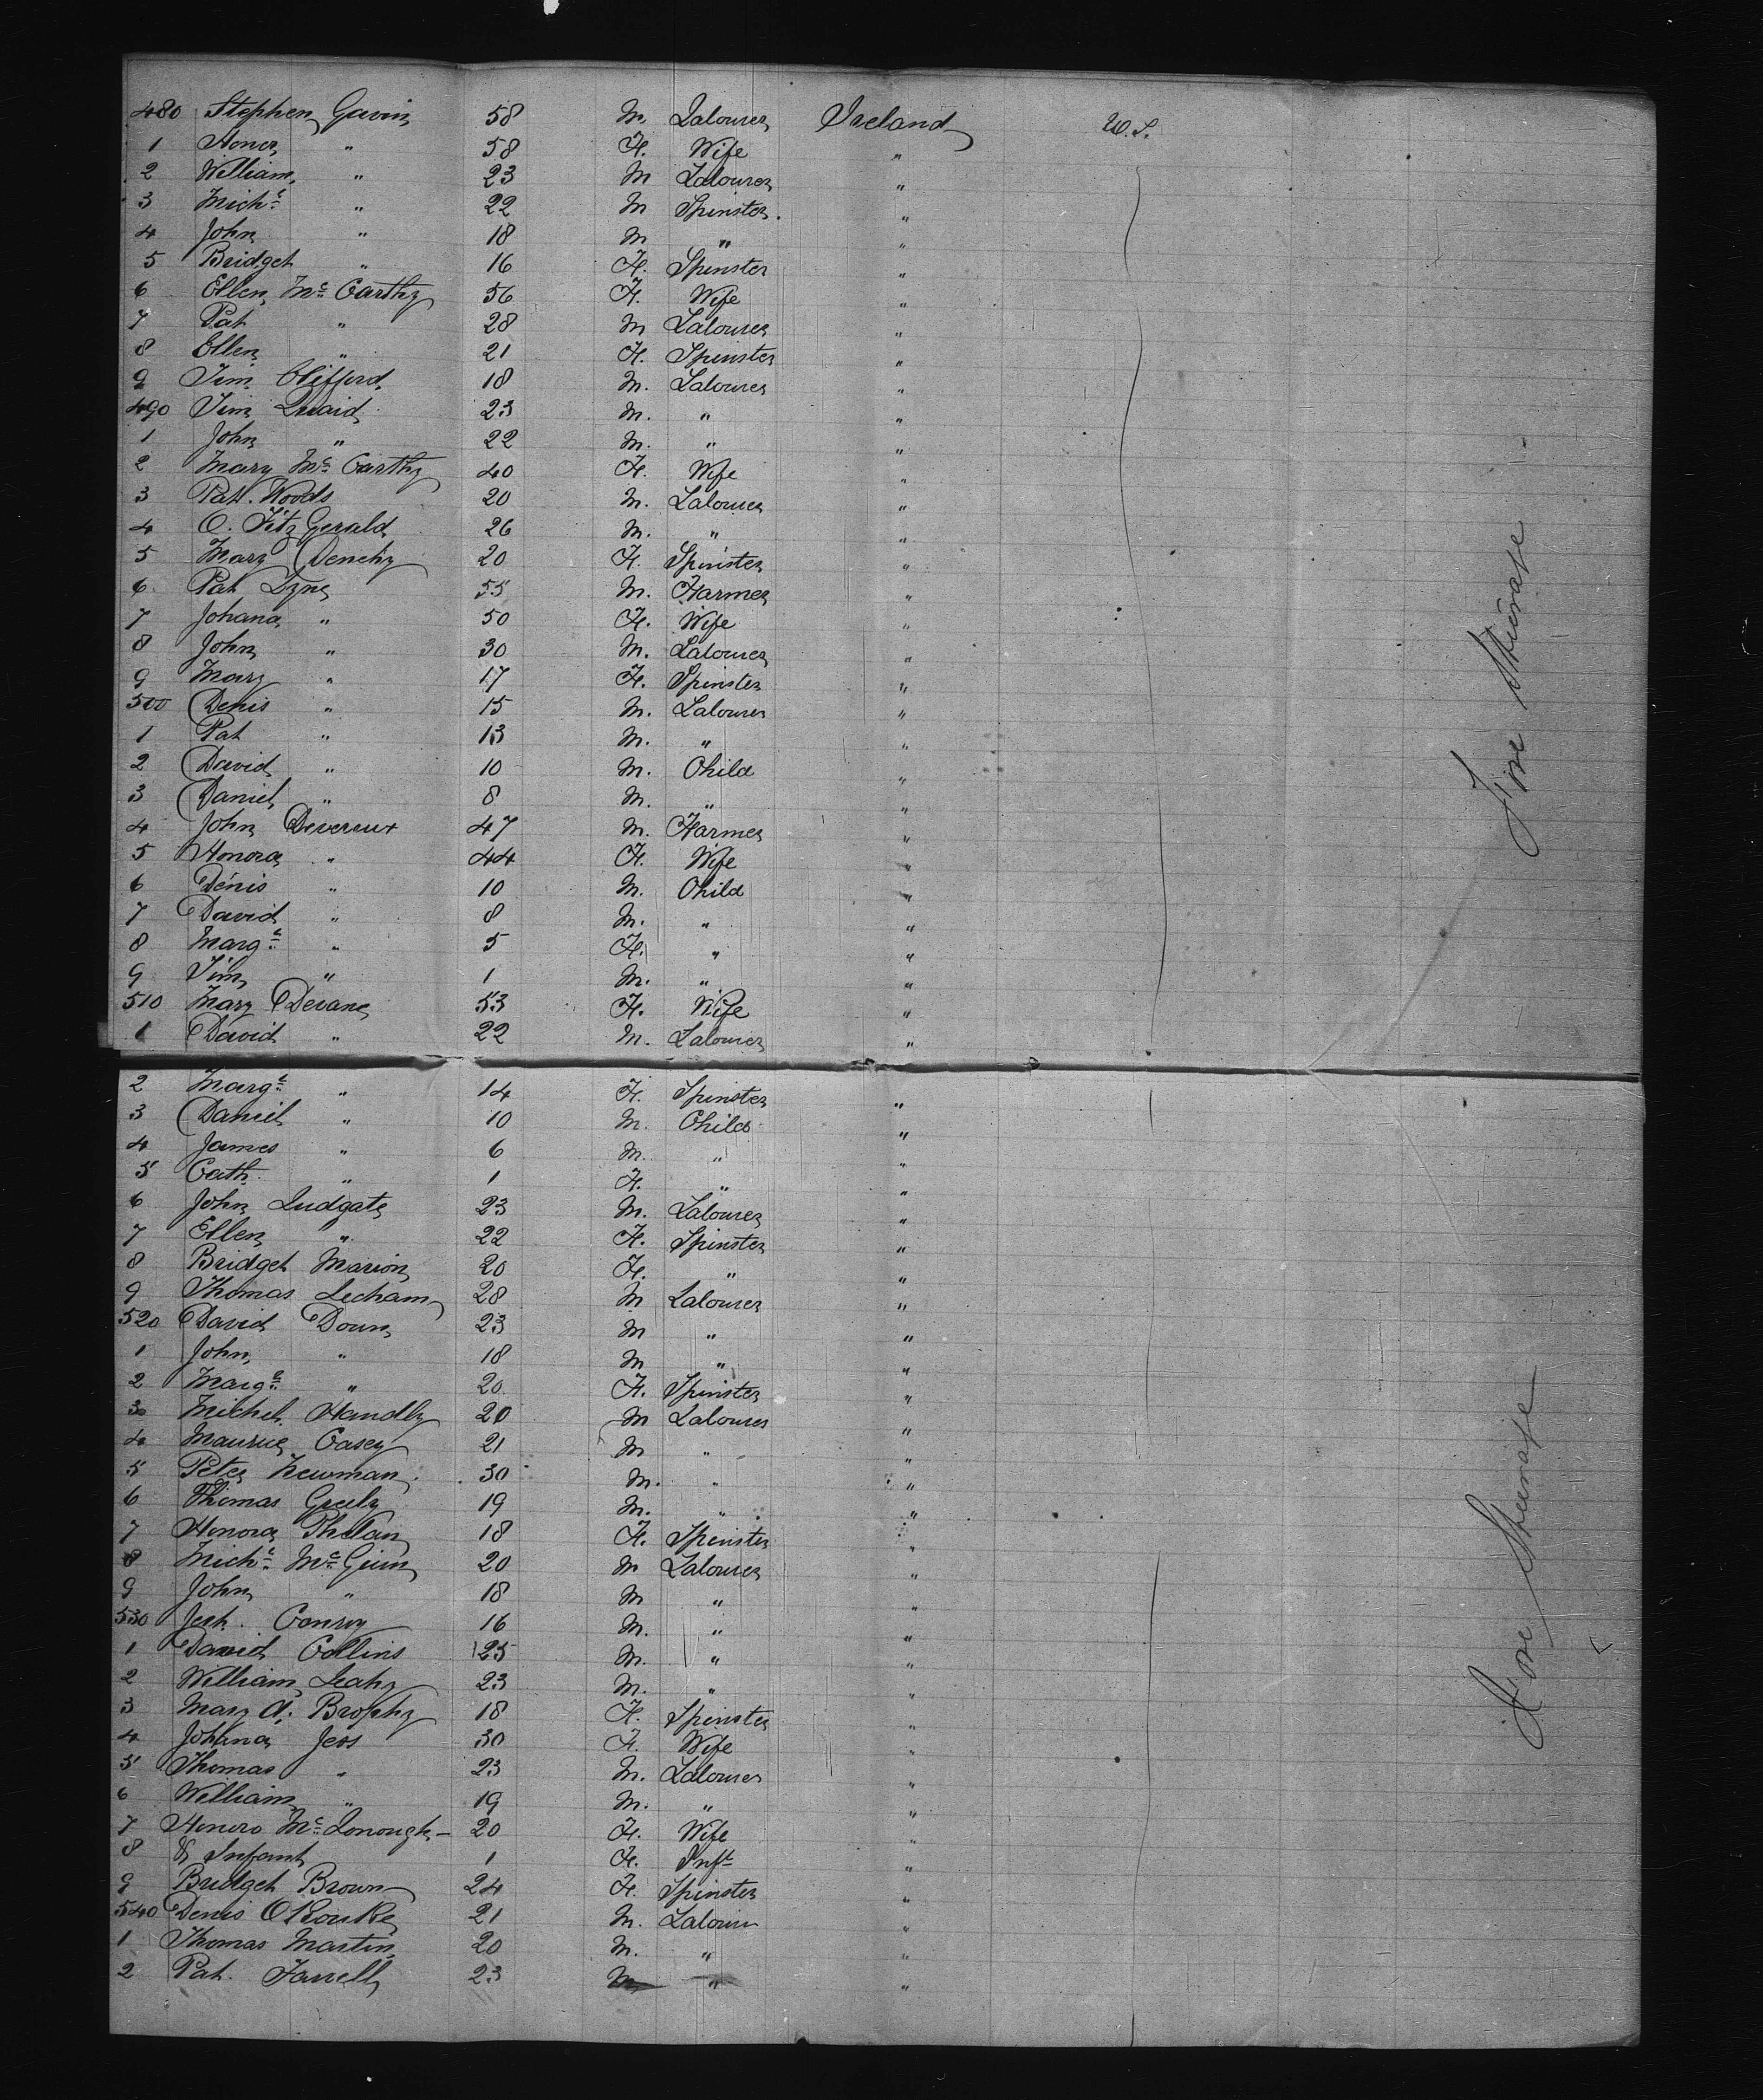 480 Stephen Gavin 58 M Labourer Ireland U.S.
1 Honor " 58 F. Wife "
2 William " 23 M Labourer "
3 Michl " 22 M Spinster. "
4 John " 18 M " "
5 Bridget " 16 F. Spinster "
6 Ellen Mc Carthy 56 F. Wife "
7 Pat " 28 M Labourer "
8 Ellen " 21 F. Spinster "
9 Tim Clifford 18 M. Labourer "
490 Tim Quaid 23 M. " "
1 John " 22 M. " "
2 Mary Mc Carthy 40 F. Wife "
3 Patk. Woods 20 M. Labourer "
4 C. Fitz Gerald 26 M. " "
5 Mary Denehy 20 F. Spinster "
6 Pat Lyne 55 M. Farmer "
7 Johana " 50 F. Wife "
8 John " 30 M. Labourer "
9 Mary " 17 F. Spinster "
500 Denis " 15 M. Labourer "
1 Pat " 13 M. " "
2 David " 10 M. Child "
3 Daniel " 8 M. " "
4 John Devereux 47 M. Farmer "
5 Honora " 44 F. Wife "
6 Denis " 10 M. Child "
7 David " 8 M. " "
8 Margt " 5 F. " "
9 Tim " 1 M. " "
510 Mary Devane 53 F. Wife "
1 David " 22 M. Labourer "
2 Margt " 14 F. Spinster "
3 Daniel " 10 M. Child "
4 James " 6 M. " "
5 Cath. " 1 F. " "
6 John Ludgate 23 M. Labourer "
7 Ellen " 22 F. Spinster "
8 Bridget Marion 20 F. " "
9 Thomas Lecham 28 M Labourer "
520 David Doun 23 M " "
1 John " 18 M " "
2 Margt " 20 F. Spinster "
3 Michel. Handly 20 M Labourer "
4 Maurice Casey 21 M " "
5 Peter Newman 30 M. " "
6 Thomas Greely 19 M. " "
7 Honora Phelan 18 F. Spinster "
8 Michl Mc Ginn 20 M Labourer "
9 John " 18 M " "
530 Jerh. Conroy 16 M. " "
1 David Collins 25 M. " "
2 William Leahy 23 M. " "
3 Mary A. Brophy 18 F. Spinster "
4 Johana Jeos 30 F. Wife "
5 Thomas " 23 M. Labourer "
6 William " 19 M. " "
7 Honoro Mc Donough 20 F. Wife "
8 & Infant 1 F. Inft "
9 Bridget Brown 24 F. Spinster "
540 Denis O Rourke 21 M. Labourer "
1 Thomas Martin 20 M. " "
2 Pat. Farrell 23 M " "
Fore Steerage
Fore Steerage